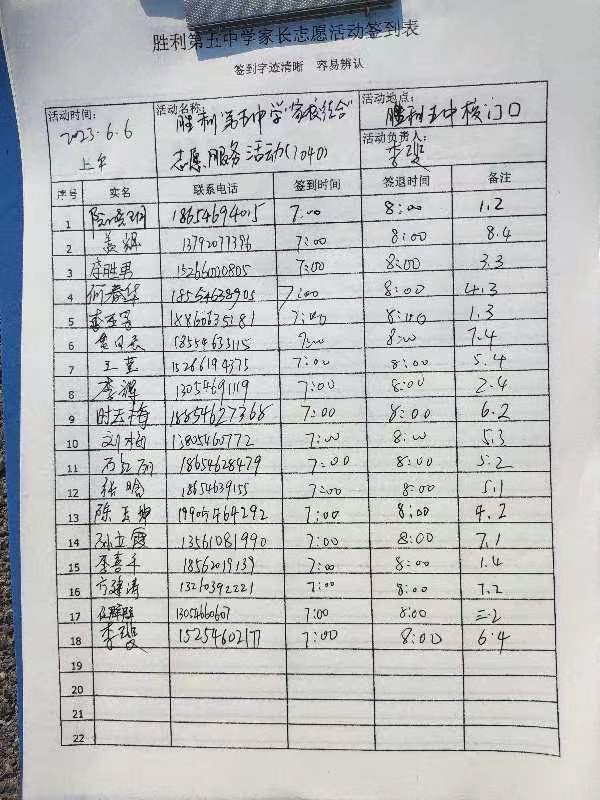 胜利第五中学家长志愿活动签到表
签到字迹清晰 容易辨认
活动时间: 2023.6.6 上午
活动名称: 胜利第五中学"家校结合"
志愿服务活动(1040)
活动地点: 胜利五中校门口
活动负责人: 李
序号 实名 联系电话 签到时间 签退时间 备注
1 18654694015 7:00 8:00 1.2
2 盖 13792077396 7:00 8:00 8.4
3 胜男 15266000805 7:00 8:00 3.3
4 何春华 18554638905 7:00 8:00 4.3
5 7:00 8:00 1.3
6 18554633115 7:00 8:00 7.4
7 王 15266194375 7:00 8:00 5.4
8 李辉 13054691119 7:00 8:00 2.4
9 时云梅 18854627368 7:00 8:00 6.2
10 刘 13805460772 7:00 8:00 5.3
11 18654628479 7:00 8:00 5.2
12 张 18654639155 7:00 8:00 5.1
13 陈玉 19905464292 7:00 8:00 4.2
14 孙立霞 13561081990 7:00 8:00 7.1
15 李喜 18562019139 7:00 8:00 1.4
16 方建涛 13210392221 7:00 8:00
17 13054660607 7:00 8:00
18 李 15254602177 7:00 8:00 6.4
19
20
21
22